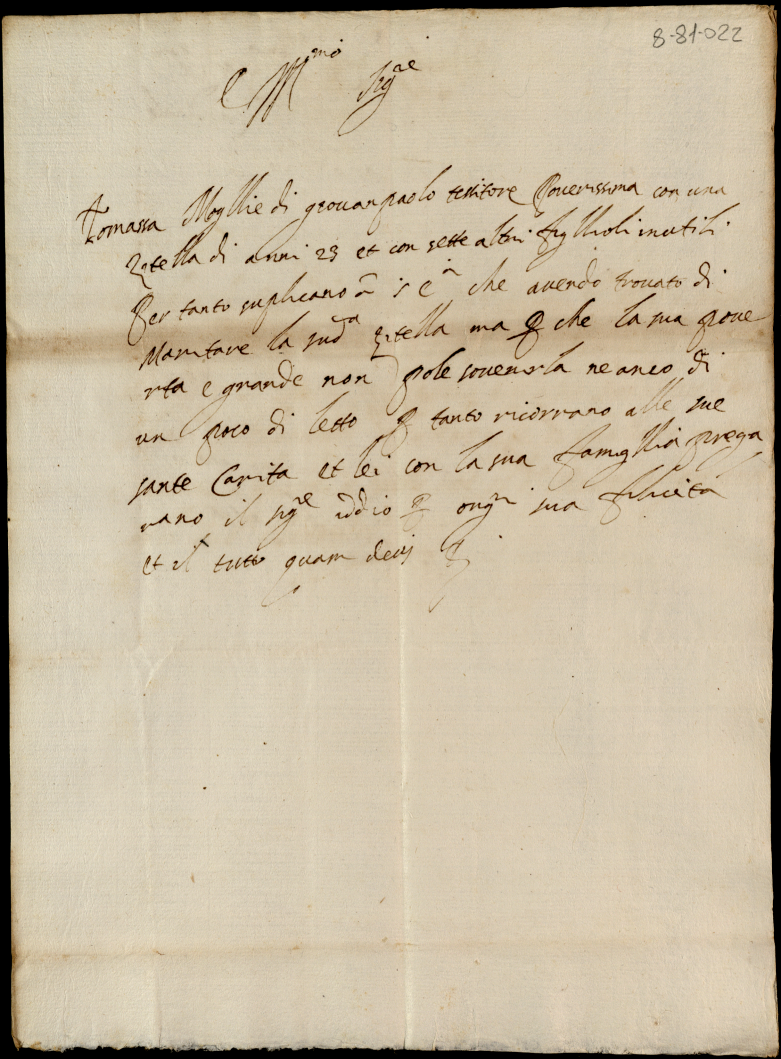 8-81-022
E Mmo Sigre
Tomassa Mogllie di giovanpaolo tessitore Poverissima con una
Zitella di anni 23 et con sette altri figllioli inutili
Per tanto suplicano à S Ea che avendo trovato di
Maritare la suda zitella ma p che la sua pove
rta e grande non pole sovenirla ne anco di
un poco di letto p tanto ricorrano alle sue
sante Carita et lei con la sua famigllia prega
rano il sigre iddio p ongi sua felicita
et il tutto quam deus